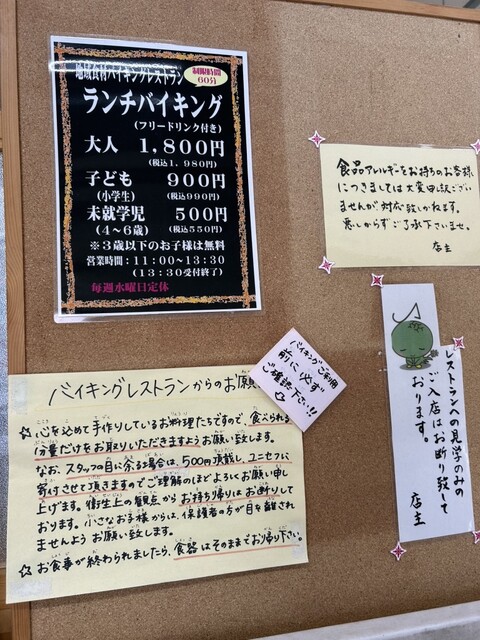 地域食材バイキングレストラン
制限時間
60分
ランチバイキング
(フリードリンク付き)
大人 1,800円
(税込1,980円)
子ども 900円
(小学生) (税込990円)
未就学児 500円
(4～6歳) (税込550円)
※3歳以下のお子様は無料
営業時間：11:00～13:30
(13:30受付終了)
毎週水曜日定休
食品アレルギーをお持ちのお客様
につきましては大変申し訳ござい
ませんが対応致しかねます。
悪しからずご了承下さいませ。
店主
バイキングご利用
前に必ず
ご確認下さい!!
レストランへの見学のみの
ご入店はお断り致して
おります。
店主
バイキングレストランからのお願
☆心を込めて手作りしているお料理たちですので、食べられる
分量だけをお取りいただきますようお願い致します。
なお、スタッフの目に余る場合は、500円頂戴し、ユニセフに
寄付させて頂きますのでご理解のほどよろしくお願い申し
上げます。衛生上の観点からお持ち帰りはお断りして
おります。小さなお子様からは、保護者の方が目を離され
ませんようお願い致します。
☆お食事が終わられましたら、食器はそのままでお帰り下さい。